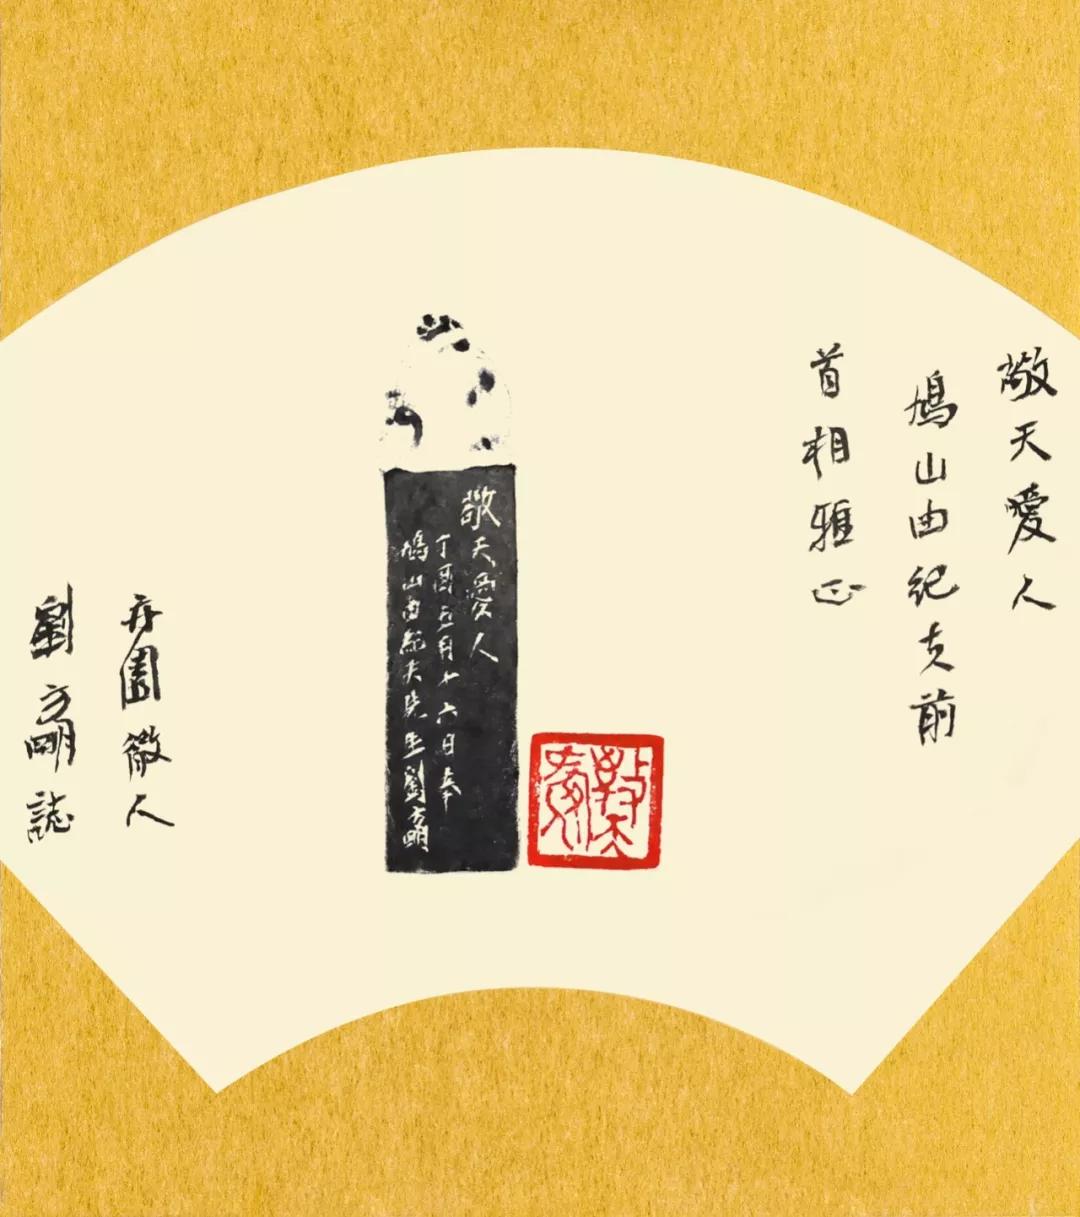 敬天愛人
鳩山由紀夫前
首相雅正
敬天愛人
丁酉五月十六日奉
鳩山由紀夫先生劉方明
敬天愛人
園徽人
劉方明誌